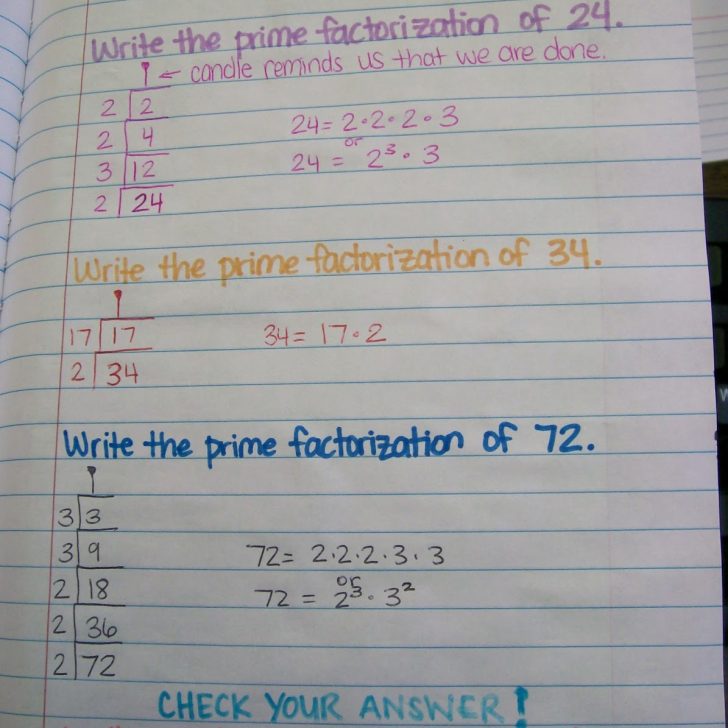 Write the prime factorization of 24.
1 ← candle reminds us that we are done.
2 2
2 4
24 = 2·2·2·3
or
3 12
24 = 2³·3
2 24
Write the prime factorization of 34.
1
17 17
34 = 17·2
2 34
Write the prime factorization of 72.
1
3 3
3 9
72 = 2·2·2·3·3
or
2 18
72 = 2³·3²
2 36
2 72
CHECK YOUR ANSWER!